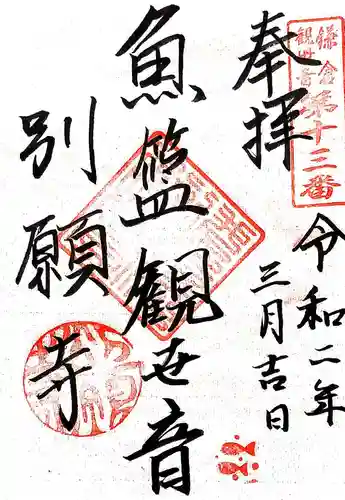 鎌倉
観世音第十三番
奉拝
令和二年
三月吉日
魚籃観世音
別願寺